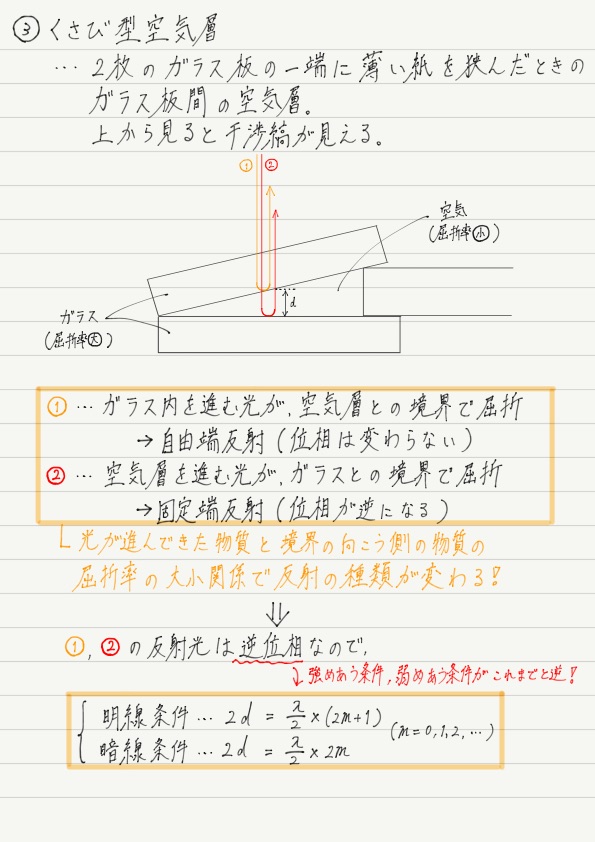 ③ くさび型空気層
… 2枚のガラス板の一端に薄い紙を挟んだときの
ガラス板間の空気層。
上から見ると干渉縞が見える。
① ②
空気
(屈折率小)
d
ガラス
(屈折率大)
① … ガラス内を進む光が、空気層との境界で屈折
→ 自由端反射 (位相は変わらない)
② … 空気層を進む光が、ガラスとの境界で屈折
→ 固定端反射 (位相が逆になる)
└ 光が進んできた物質と境界の向こう側の物質の
屈折率の大小関係で反射の種類が変わる!
⇓
①, ② の反射光は逆位相なので、
↳ 強めあう条件, 弱めあう条件がこれまでと逆!
明線条件 … 2d = λ/2 × (2m+1)
(m = 0, 1, 2, …)
暗線条件 … 2d = λ/2 × 2m